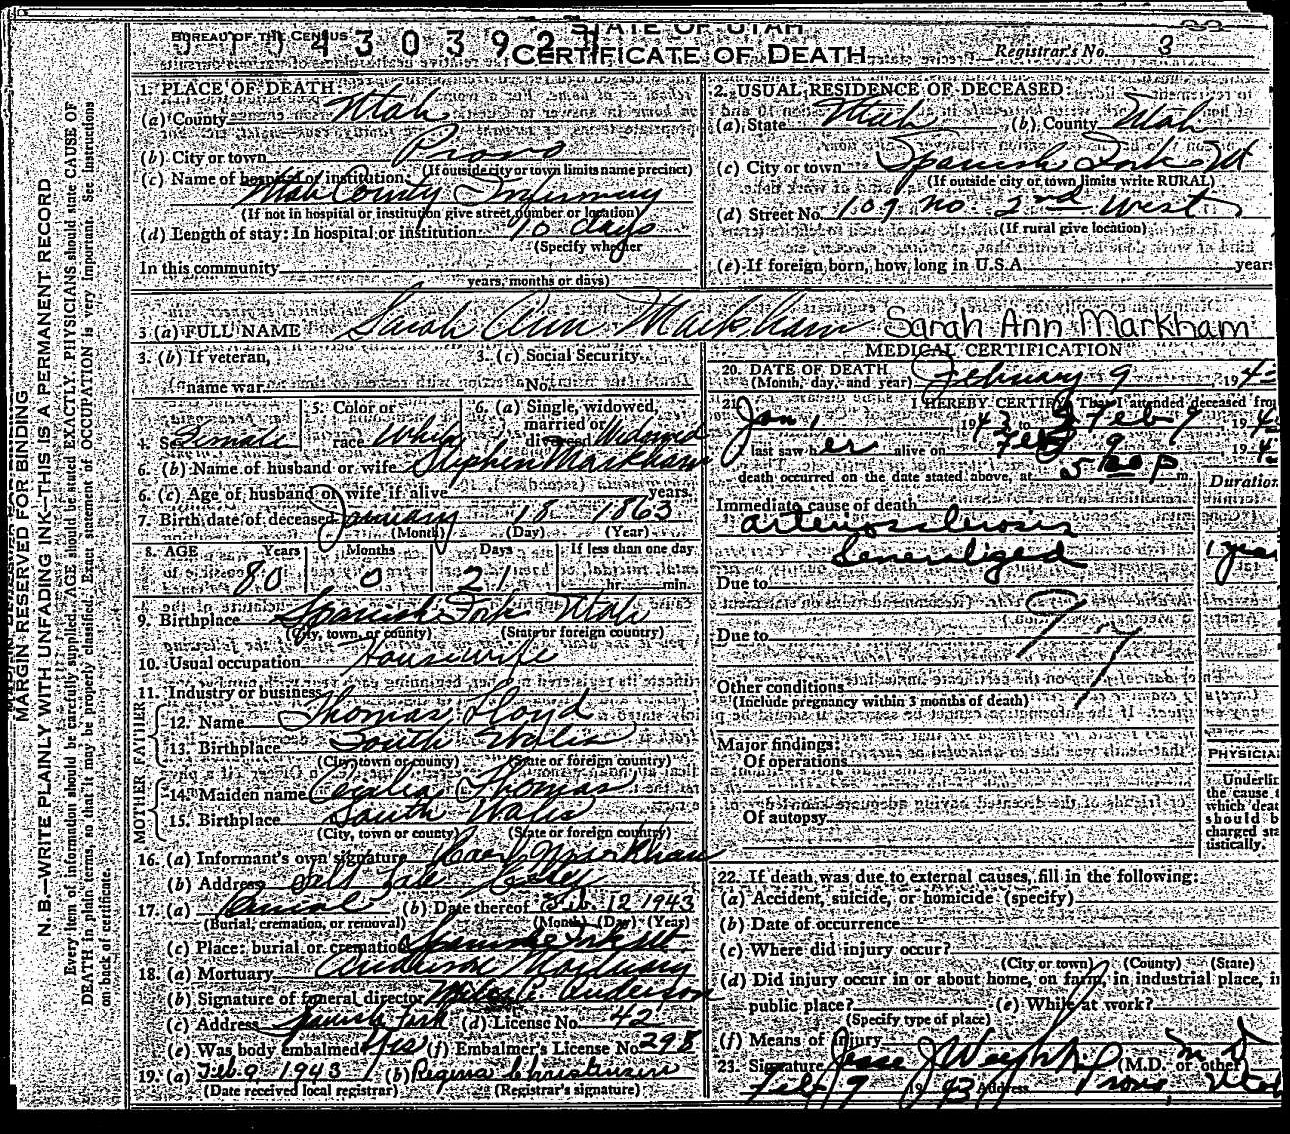 BUREAU OF THE CENSUS
STATE OF UTAH
CERTIFICATE OF DEATH
Registrar's No. 8
MARGIN RESERVED FOR BINDING
N. B.—WRITE PLAINLY WITH UNFADING INK—THIS IS A PERMANENT RECORD
Every item of information should be carefully supplied. AGE should be stated EXACTLY. PHYSICIANS should state CAUSE OF
DEATH in plain terms, so that it may be properly classified. Exact statement of OCCUPATION is very important. See instructions
on back of certificate.
1. PLACE OF DEATH:
(a) County Utah
(b) City or town Provo
(If outside city or town limits name precinct)
(c) Name of hospital or institution:
Utah County Infirmary
(If not in hospital or institution give street number or location)
(d) Length of stay: In hospital or institution 90 days
(Specify whether
In this community
years, months or days)
2. USUAL RESIDENCE OF DECEASED:
(a) State Utah (b) County Utah
(c) City or town Spanish Fork Ut
(If outside city or town limits write RURAL)
(d) Street No. 109 No. 2nd West
(If rural give location)
(e) If foreign born, how long in U.S.A. years
3 (a) FULL NAME Sarah Ann Markham Sarah Ann Markham
3. (b) If veteran,
name war
3. (c) Social Security
No.
4. Sex Female
5. Color or
race White
6. (a) Single, widowed,
married or
divorced Widowed
6. (b) Name of husband or wife Stephen Markham
6. (c) Age of husband or wife if alive years.
7. Birth date of deceased January 18 1863
(Month) (Day) (Year)
8. AGE Years Months Days If less than one day
80 0 21 hr. min.
9. Birthplace Spanish Fork Utah
(City, town, or county) (State or foreign country)
10. Usual occupation Housewife
11. Industry or business
FATHER
12. Name Thomas Lloyd
13. Birthplace South Wales
(City, town or county) (State or foreign country)
MOTHER
14. Maiden name Cecilia Thomas
15. Birthplace South Wales
(City, town or county) (State or foreign country)
16. (a) Informant's own signature Markham
(b) Address Salt Lake
17. (a) Burial (b) Date thereof Feb. 12 1943
(Burial, cremation, or removal) (Month) (Day) (Year)
(c) Place: burial or cremation Spanish Fork Ut
18. (a) Mortuary Anderson Mortuary
(b) Signature of funeral director Anderson
(c) Address Spanish Fork (d) License No. 42
(e) Was body embalmed? Yes (f) Embalmer's License No. 298
19. (a) Feb. 9, 1943 (b) Regina Christensen
(Date received local registrar) (Registrar's signature)
MEDICAL CERTIFICATION
20. DATE OF DEATH
(Month, day, and year) February 9, 194
21. I HEREBY CERTIFY That I attended deceased from
Jan 1 1943 to Feb 9, 194
last saw her alive on Feb 9 194
death occurred on the date stated above, at 5 p m.
Immediate cause of death Duration
arteriosclerosis
Generalized 1 year
Due to
Due to
97
Other conditions
(Include pregnancy within 3 months of death)
Major findings:
Of operations
Of autopsy
PHYSICIA
Underlin
the cause t
which deat
should b
charged sta
tistically.
22. If death was due to external causes, fill in the following:
(a) Accident, suicide, or homicide (specify)
(b) Date of occurrence
(c) Where did injury occur?
(City or town) (County) (State)
(d) Did injury occur in or about home, on farm, in industrial place, in
public place? (e) While at work?
(Specify type of place)
(f) Means of injury
23. Signature (M.D. or other) M D
Feb 9 1943 Address Provo, Utah